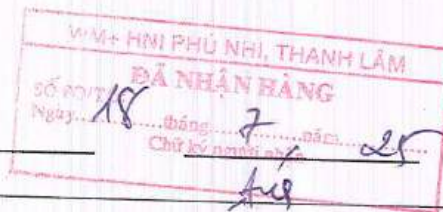 WM+ HNI PHÚ NHI, THANH LÂM
ĐÃ NHẬN HÀNG
Ngày 18 tháng 7 năm 25
Chữ ký người nhận